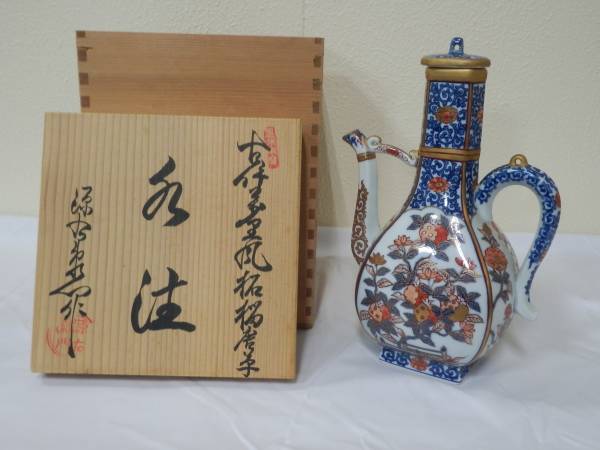 古伊万里風柘榴唐草
水注
源右衛門作